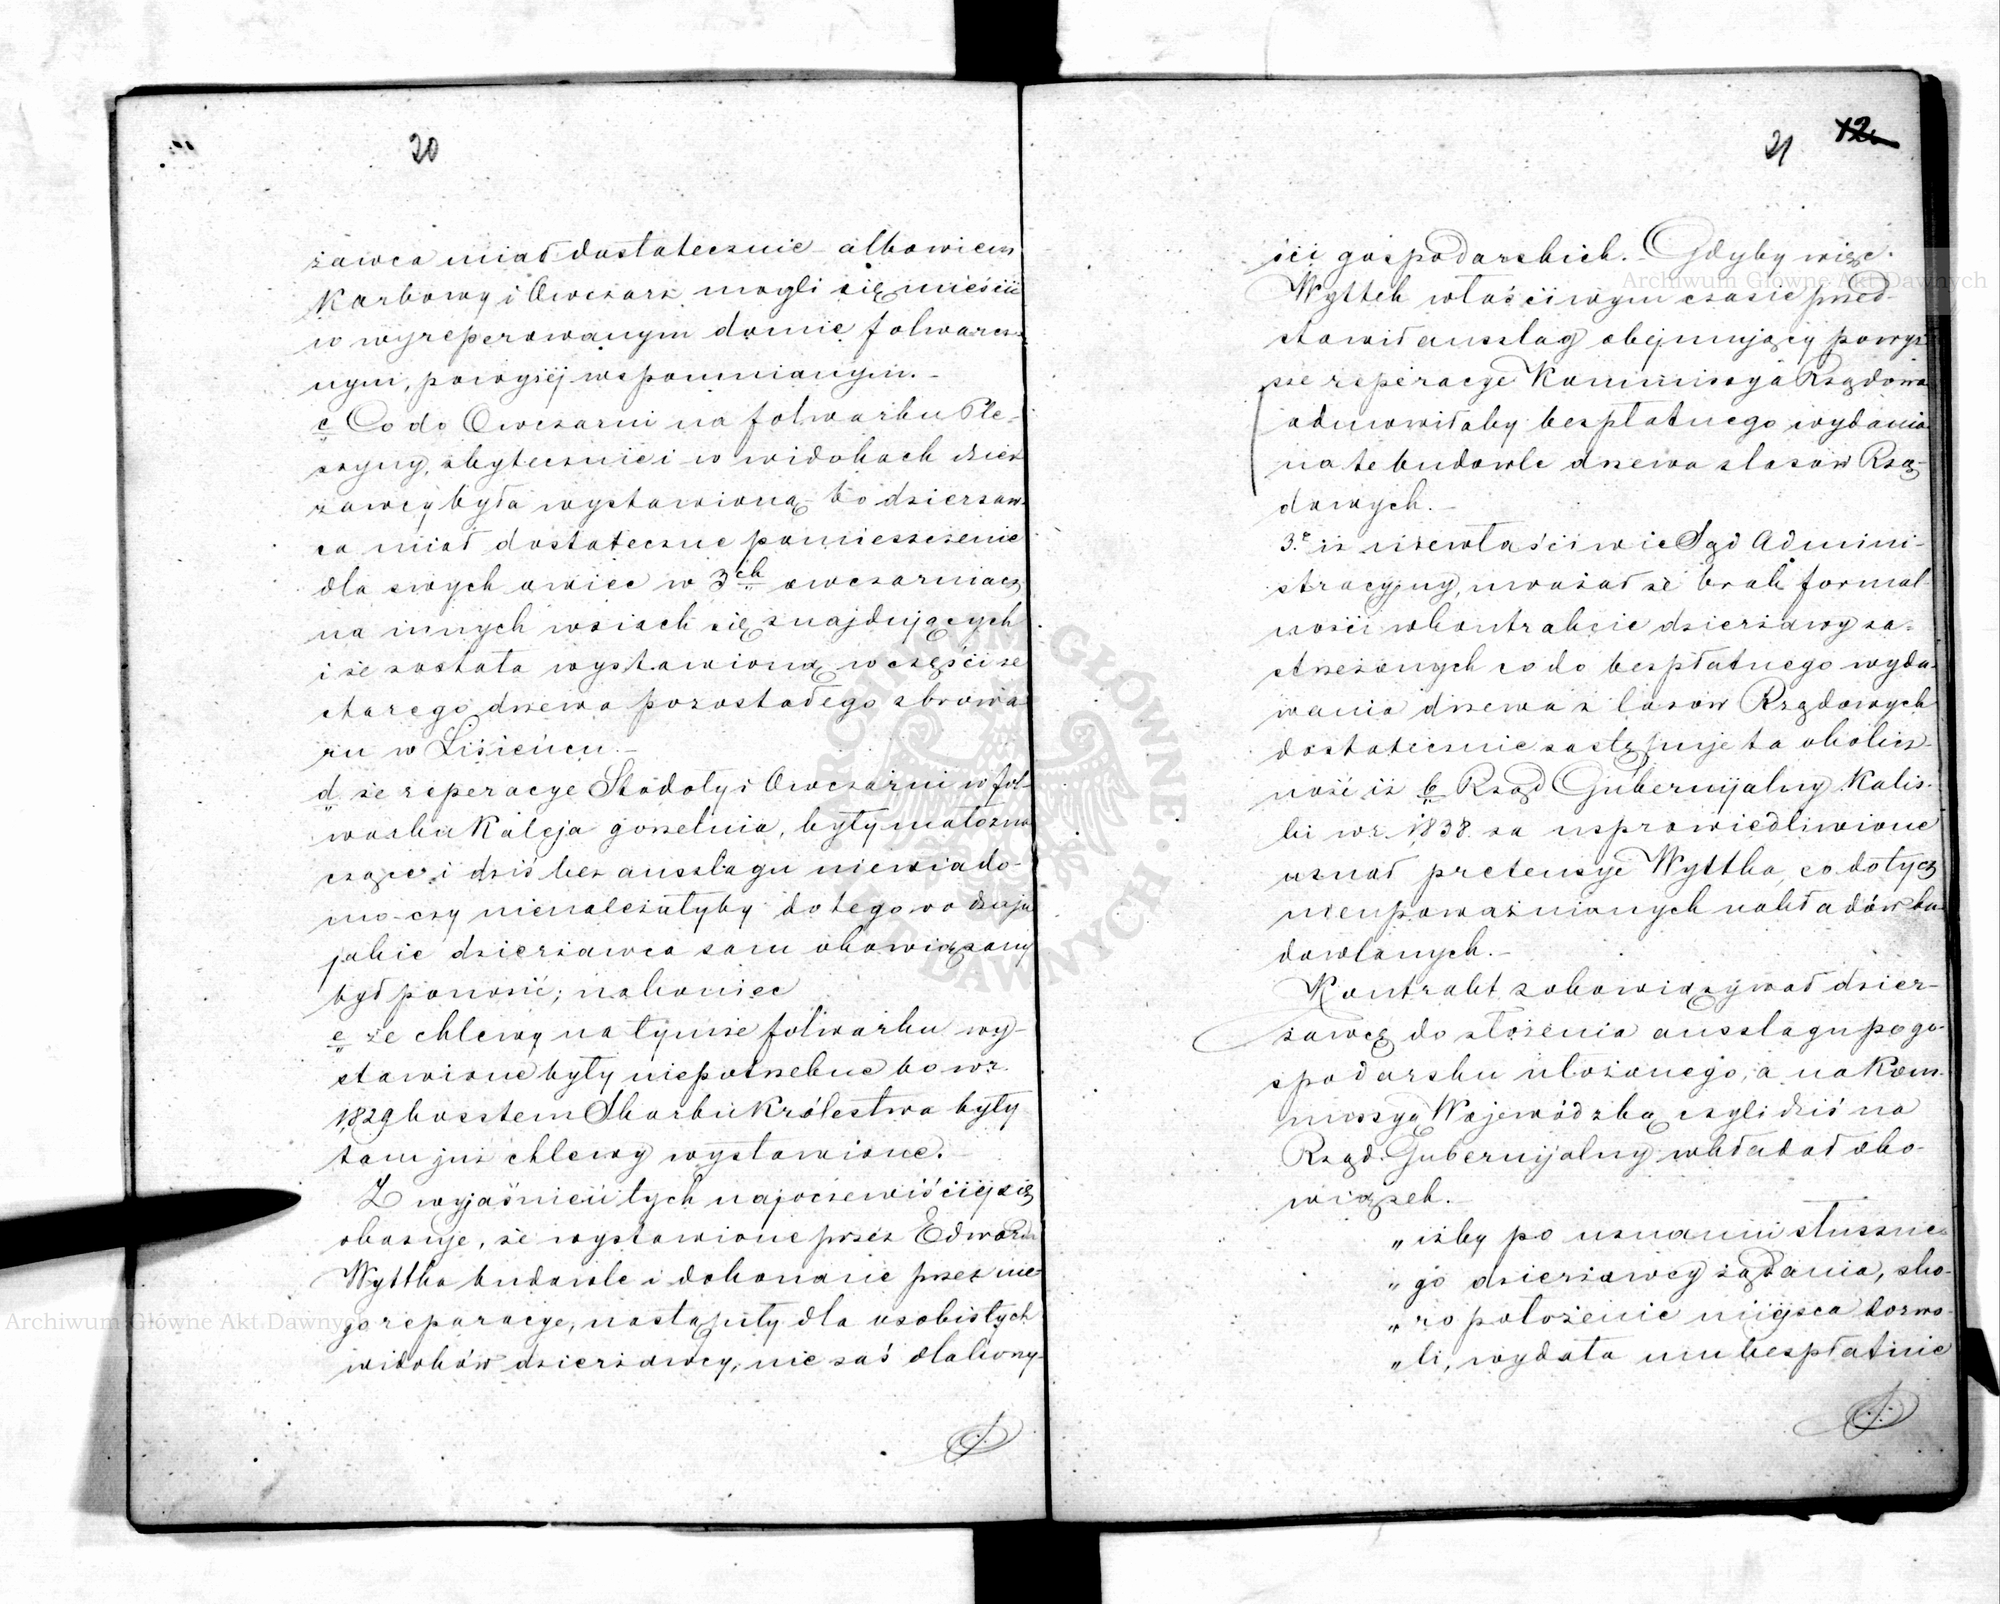 20
żawca miał dostatecznie albowiem
Karbowy i Owczarz mogli się mieścić
w wyreperowanym domie folwarcz-
nym, powyżej wspomnianym. –
c Co do Owczarni na folwarku Ple-
szyny, zbytecznie i w widokach dzier
żawcy była wystawioną – bo dzierżaw-
ca miał dostateczne pomieszczenie
dla swych owiec w 3ch owczarniach
na innych wsiach się znajdujących
i że została wystawioną w części ze
starego drzewa pozostałego z browa
ru w Lisieńcu. –
d. że reperacye Stodoły i Owczarni w fol-
warku Kaleja gorzelnia, były małozna
czące i dziś bez ansztagu niewiado-
mo czy nienależałyby do tego rodzaju
jakie dzierżawca sam obowiązany
był ponosić; nakoniec
e że chlewy na tymże folwarku wy-
stawione były niepotrzebne bo w r.
1829 kosztem Skarbu Królestwa były
tam już chlewy wystawione. –
Z wyjaśnień tych najoczewiściej się
okazuje, że wystawione przez Edwarda
Wyttka budowle i dokonane przez nie-
go reparacye, nastąpiły dla osobistych
widoków dzierżawcy, nie zaś dla korzy-
21 12
ści gospodarskich. – Gdyby więc
Wyttek właściwym czasie przed-
stawił ansztag obejmujący powyż
sze reperacye Kommissya Rządowa
odmówiłaby bezpłatnego wydania
na te budowle drzewa z lasów Rzą-
dowych. –
3.e iż niewłaściwie Sąd Admini-
stracyjny, uważał że brak formal-
ności w kontrakcie dzierżawy za-
strzeżonych co do bezpłatnego wyda-
wania drzewa z lasów Rządowych
dostatecznie zastępuje ta okolicz-
ność iż b Rząd Gubernijalny Kalis-
ki w r. 1838 za usprawiedliwione
uznał pretensye Wyttka, co dotycz
nieupoważnianych nakładów bu-
dowlanych. –
Kontrakt zobowiązywał dzier-
żawcę do złożenia ansztagu po go-
spodarsku ułożonego, a na Kom-
missyą Wojewódzką czyli dziś na
Rząd Gubernijalny wkładał obo-
wiązek. –
„ iżby po uznaniu słuszne-
„ go dzierżawcy żądania, sko-
„ ro położenie miejsca dozwo-
„ li, wydała mu bezpłatnie
Archiwum Główne Akt Dawnych
Archiwum Główne Akt Dawnych
ARCHIWUM GŁÓWNE AKT DAWNYCH